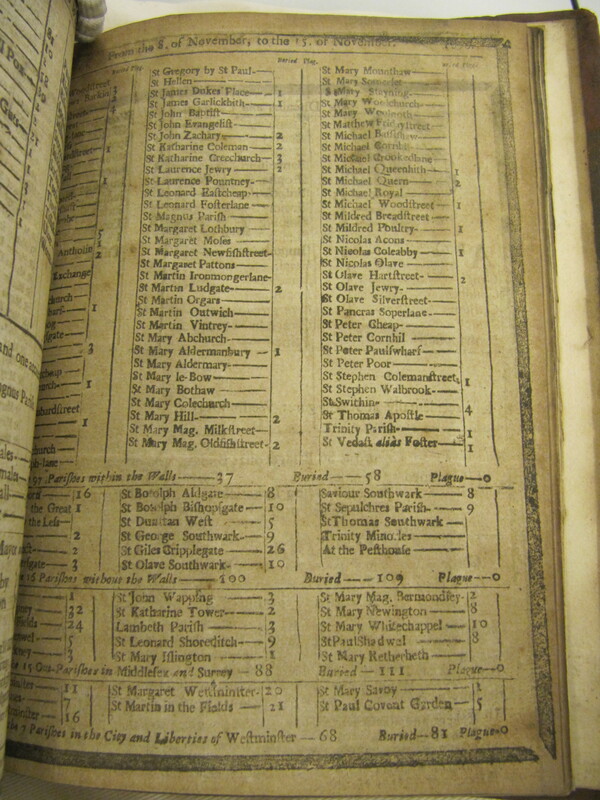 From the 8. of November, to the 15. of November.
Buried Plag.
St Gregory by St Paul
St Hellen
St James Dukes Place 1
St James Garlickhith 1
St John Baptist
St John Evangelist
St John Zachary 2
St Katharine Coleman 2
St Katharine Creechurch 3
St Laurence Jewry 2
St Laurence Pountney
St Leonard Eastcheap
St Leonard Fosterlane
St Magnus Parish
St Margaret Lothbury
St Margaret Moses
St Margaret Newfishstreet
St Margaret Pattons
St Martin Ironmongerlane
St Martin Ludgate 2
St Martin Orgars
St Martin Outwich
St Martin Vintrey
St Mary Abchurch
St Mary Aldermanbury 1
St Mary Aldermary
St Mary le-Bow
St Mary Bothaw
St Mary Colechurch
St Mary Hill 2
St Mary Mag. Milkstreet
St Mary Mag. Oldfishstreet 2
St Mary Mounthaw
St Mary Somerset
St Mary Stayning
St Mary Woolchurch
St Mary Woolnoth
St Matthew Fridaystreet
St Michael Bassishaw
St Michael Cornhil
St Michael Crookedlane
St Michael Queenhith 1
St Michael Quern 2
St Michael Royal
St Michael Woodstreet 1
St Mildred Breadstreet
St Mildred Poultry 1
St Nicolas Acons
St Nicolas Coleabby 1
St Nicolas Olave
St Olave Hartstreet 2
St Olave Jewry
St Olave Silverstreet
St Pancras Soperlane
St Peter Cheap
St Peter Cornhil
St Peter Paulswharf
St Peter Poor
St Stephen Colemanstreet 1
St Stephen Walbrook
St Swithin
St Thomas Apostle 4
Trinity Parish 1
St Vedast alias Foster 1
97 Parishes within the Walls 37 Buried 58 Plague 0
St Botolph Aldgate 8
St Botolph Bishopsgate 10
St Dunstan West 5
St George Southwark 9
St Giles Cripplegate 26
St Olave Southwark 10
Saviour Southwark 8
St Sepulchres Parish 9
St Thomas Southwark
Trinity Minories
At the Pesthouse
16 Parishes without the Walls 100 Buried 109 Plague 0
St John Wapping 3
St Katharine Tower 2
Lambeth Parish 3
St Leonard Shoreditch 9
St Mary Islington 1
St Mary Mag. Bermondsey 2
St Mary Newington 8
St Mary Whitechappel 10
St Paul Shadwel 8
St Mary Retherheth
15 Out-Parishes in Middlesex and Surrey 88 Buried 111 Plague 0
St Margaret Westminster 20
St Martin in the Fields 21
St Mary Savoy
St Paul Covent Garden 5
7 Parishes in the City and Liberties of Westminster 68 Buried 81 Plague 0